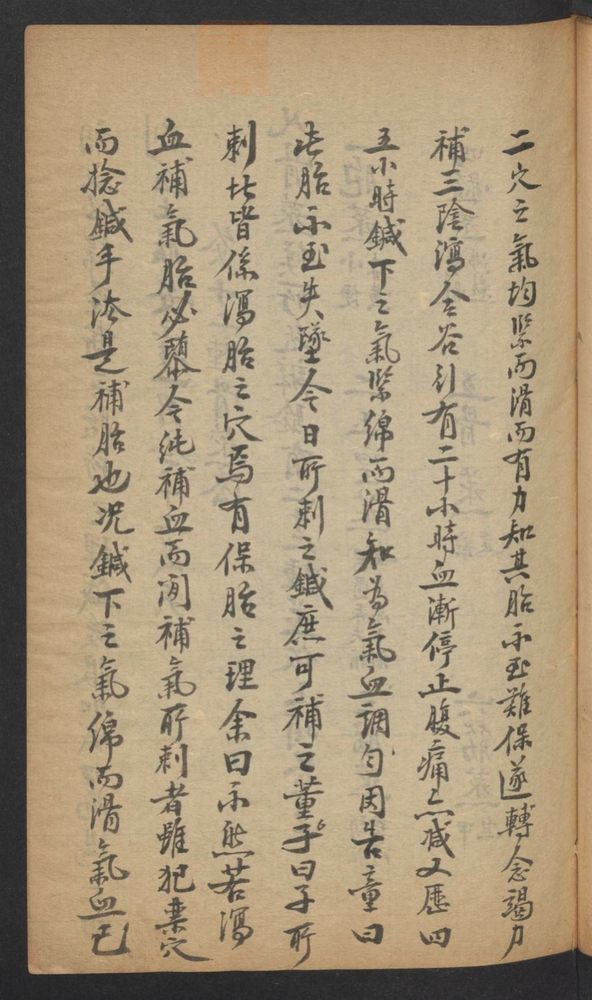 二穴之氣均緊而滑而有力知其胎不至難保遂轉念竭力
補三陰瀉合谷引有二十小時血漸停止腹痛亦减又歷四
五小時鍼下之氣緊綿而滑知為氣血調勻因告董曰
此胎不至失墜今日所刺之鍼庶可補之董子曰子所
刺北皆係瀉胎之穴焉有保胎之理余曰不然若瀉
血補氣胎必墮令純補血而间補氣所刺者雖犯棄穴
而捻鍼手法是補胎也况鍼下之氣綿而滑氣血已